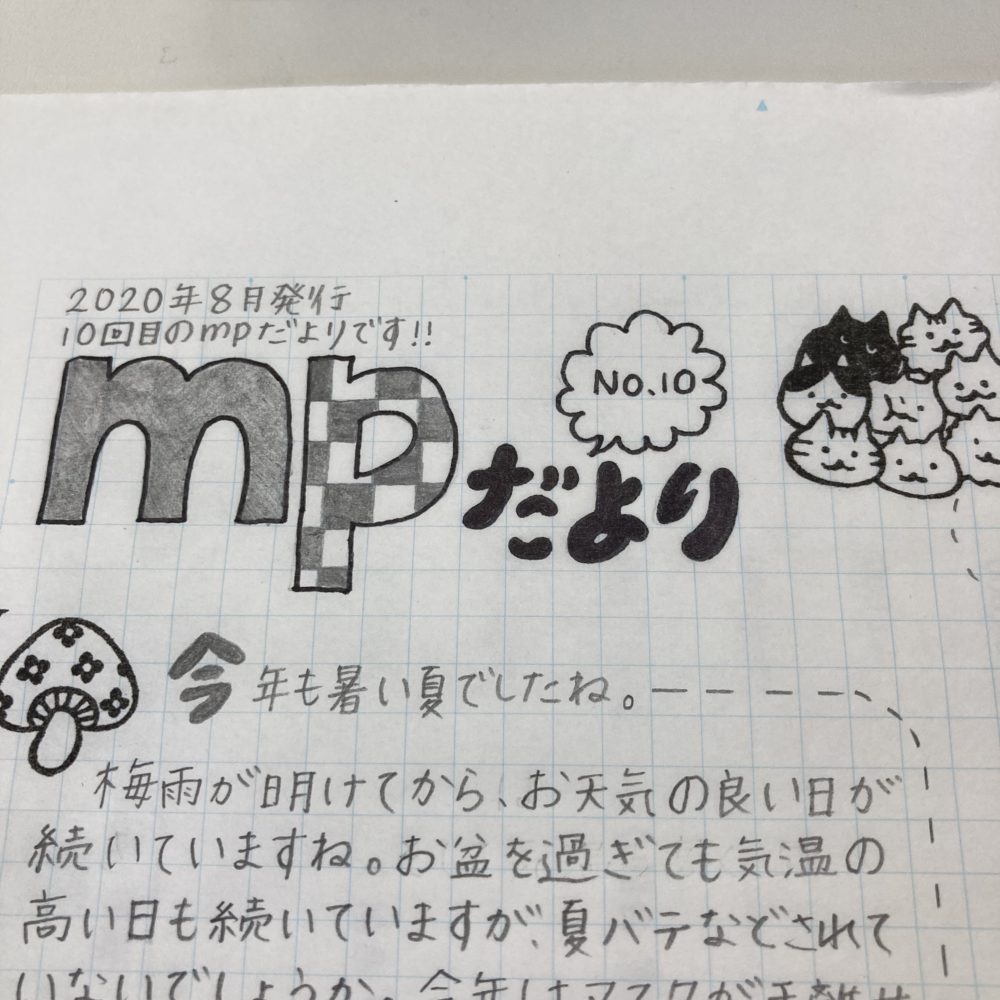 2020年8月発行
10回目のmpだよりです!!
mpだより
NO.10
今年も暑い夏でしたね。
梅雨が明けてから、お天気の良い日が
続いていますね。お盆を過ぎても気温の
高い日も続いていますが、夏バテなどされて
いないでしょうか。今年はマスクが手離せ